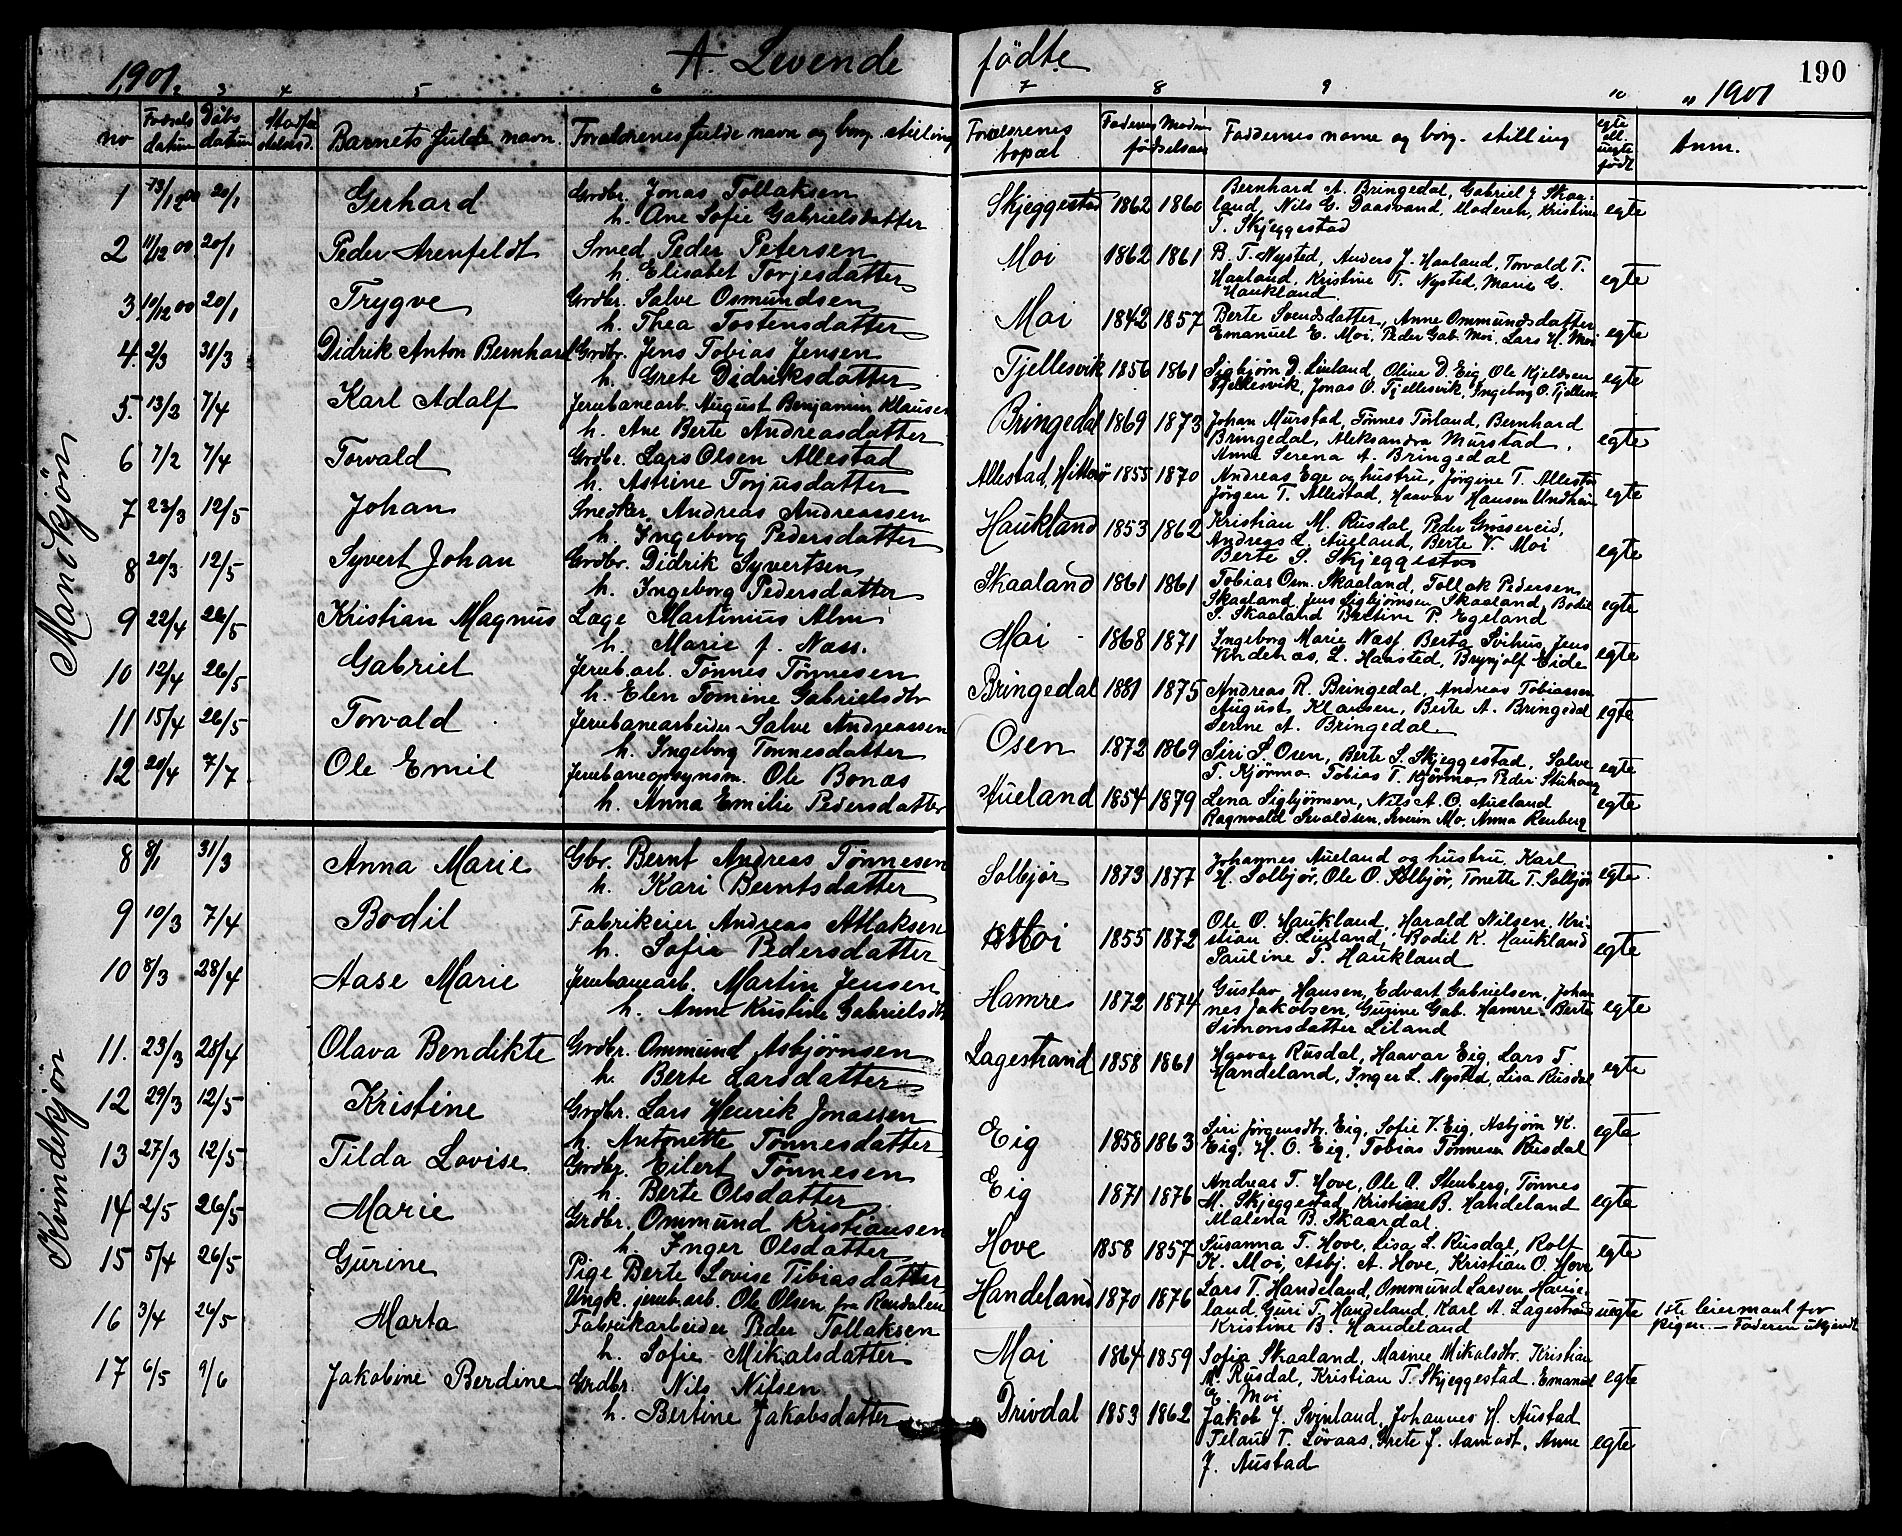 A. Levende fødte
190
1901. 2 3 4 5 6 7 8 9 10 11 1901
no Fødsels datum Døbs datum Barnets fulde navn. Forældrenes fulde navn og borg. stilling Forældrenes bopæl Faderens Modrens fødselsaar Faddernes navne og borg. stilling egte ell. uegte født Anm.
Mandkjøn
1 13/12 00 20/1 Gerhard Grdbr. Jonas Tollaksen Skjeggestad 1862 1860 Bernhard A. Bringedal, Gabriel J. Skaa- egte
h. Ane Sofie Gabrielsdatter land, Nils G. Daasvand, Moderen, Kristine
T. Skjeggestad
2 11/12 00 20/1 Peder Arenfeldt Smed Peder Petersen Moi 1862 1861 B. T. Nysted, Anders J. Haaland, Torvald T. egte
h. Elisabet Torjesdatter Haaland, Kristine T. Nysted, Marie G.
Haukland.
3 10/12 00 20/1 Trygve Grdbr. Salve Osmundsen Moi 1842 1857 Berte Svendsdatter, Anne Ommundsdatter egte
h. Thea Tostensdatter Emanuel E. Moi, Peder Gab. Moi, Lars H. Moi
4. 2/3 31/3 Didrik Anton Bernhard Grdbr. Jens Tobias Jensen Tjellesvik 1856 1861 Sigbjørn D. Liuland, Oline D. Eig, Ole Kjeldsen egte
h. Grete Didriksdatter Tjellesvik, Jonas O. Tjellesvik, Ingeborg O. Tjellesv
5. 13/2 7/4 Karl Adolf Jernbanearb. August Benjamin Klausen Bringedal 1869 1873 Johan Murstad, Tønnes Tørland, Bernhard egte
h. Ane Berte Andreasdatter Bringedal, Aleksandra Murstad,
Anne Serena A. Bringedal
6 7/2 7/4 Torvald Grdbr. Lars Olsen Allestad Allestad, Hitterø 1855 1870 Andreas Ege og hustru, Jørgine T. Allestad egte
h. Astrine Torjusdatter Jørgen T. Allestad, Haavar Hansen Undheim
7 23/3 12/5 Johan Snedker Andreas Andreassen Haukland 1853 1862 Kristian M. Rusdal, Peder Grøssereid, egte
h. Ingeborg Pedersdatter Andreas L. Aueland, Berte V. Moi
Berte S. Skjeggestad
8 20/3 12/5 Syvert Johan Grdbr. Didrik Syvertsen Skaaland 1861 1861 Tobias Osm. Skaaland, Tollak Pedersen egte
h. Ingeborg Pedersdatter Skaaland, Jens Sigbjørnsen Skaaland, Bodil
S. Skaaland Bertine P. Egeland
9 22/4 26/5 Kristian Magnus Læge Martinius Alm Moi 1868 1871 Ingeborg Marie Næss, Berta Svihus, Jens egte
h. Marie f. Næss. Andenæs, L. Haasted, Brynjolf Eide
10 12/4 26/5 Gabriel Jernb.arb. Tønnes Tønnesen Bringedal 1881 1875 Andreas R. Bringedal, Andreas Tobiassen egte
h. Elen Tomine Gabrielsdtr August Klausen, Berte A. Bringedal
Serine A. Bringedal.
11 15/4 26/5 Torvald Jernbanearbeider Salve Andreassen Osen 1872 1869 Siri S. Osen, Berte S. Skjeggestad, Salve egte
h. Ingeborg Tønnesdatter T. Kjørmo Tobias T. Kjørmo Peder Stuhaug
12 20/4 7/7 Ole Emil Jernbaneopsynsm. Ole Bonæs Aueland 1854 1879 Lena Sigbjørnsen, Nils A. O. Aueland egte
h. Anna Emilie Pedersdatter Ragnvald Sivaldsen, Severin Mo, Anna Renberg
Kvindekjøn
8 8/1 31/3 Anna Marie Gbr. Bernt Andreas Tønnesen Solbjør 1873 1877 Johannes Aueland og hustru, Karl egte
h. Kari Berntsdatter H. Solbjør, Ole O. Solbjør, Tonette T. Solbjør
9 10/3 7/4 Bodil Fabrikeier Andreas Atlaksen Moi 1855 1872 Ole O. Haukland, Harald Nilsen, Kri- egte
h. Sofie Pedersdatter stian S. Liuland, Bodil K. Haukland
Pauline T. Haukland
10 8/3 28/4 Aase Marie Jernbanearb. Martin Jensen Hamre 1872 1874 Gustav Hansen, Edvart Gabrielsen, Johan egte
h. Anne Kristine Gabrielsdtr nes Jakobsen, Gurine Gab. Hamre Berte
Simonsdatter Leiland
11. 23/3 28/4 Olava Bendikte Grdbr. Ommund Asbjørnsen Lagestrand 1858 1861 Haavar Rusdal, Haavar Eig, Lars T. egte
h. Berte Larsdatter Handeland, Inger L. Nysted, Lisa Rusdal
12 29/3 12/5 Kristine Grdbr. Lars Henrik Jonassen Eig 1858 1863 Siri Jørgensdtr. Eig, Sofie V. Eig, Asbjørn K. egte
h. Antonette Tønnesdatter Eig, H. O. Eig, Tobias Tønnesen Rusdal
13 27/3 12/5 Tilda Lovise Grdbr. Eilert Tønnesen Eig 1871 1876 Andreas T. Hove, Ole O. Stenberg, Tønnes egte
h. Berte Olsdatter M. Skjeggestad, Kristine B. Handeland
Malena B. Skaardal.
14 2/5 26/5 Marie Grdbr. Ommund Kristiansen Hove 1858 1857 Susanna T. Hove, Lisa L. Rusdal, Rolf egte
h. Inger Olsdatter K. Moi, Asbj. A. Hove, Kristian O. Hove
15 5/4 26/5 Gurine Pige Berte Lovise Tobiasdatter Handeland 1870 1876 Lars T. Handeland, Ommund Larsen Hauge- uegte 1ste leiermaal for
Ungk. jernb.arb. Ole Olsen fra Rendalen land, Guri T. Handeland, Karl A. Lagestrand pigen. — Faderen ubekjendt
Kristine B. Handeland
16 3/4 26/5 Marta Fabrikarbeider Peder Tollaksen Moi 1864 1859 Sofie Skaaland, Masnee Mikalsdtr. Kristian egte
h. Sofie Mikalsdatter M. Rusdal, Kristian T. Skjeggestad. Emanuel
E. Moi
17 6/5 9/6 Jakobine Berdine Grdbr. Nils Nilsen Drivdal 1853 1862 Jakob J. Svinland, Johannes H. Austad egte
h. Bertine Jakobsdatter T. Løvaas, Grete J. Aamodt, Anne
J. Austad